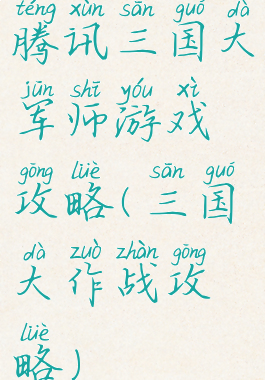 téng xùn sān guó dà
腾讯三国大
jūn shī yóu xì
军师游戏
gōng lüè sān guó
攻略(三国
dà zuò zhàn gōng
大作战攻
lüè
略)